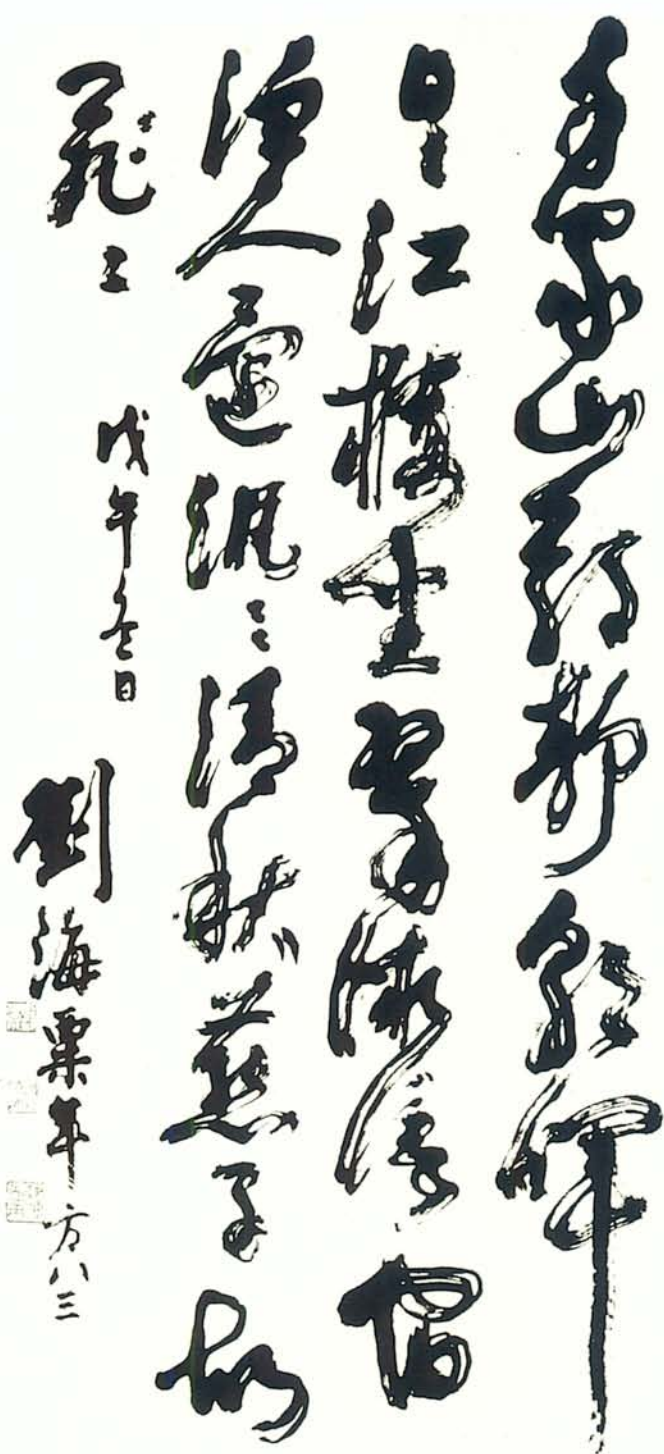 千家山郭靜朝暉
日〻江樓坐翠微信宿
漁人還汎〻清秋燕子故
飛〻 戊午冬日
劉海粟年方八三